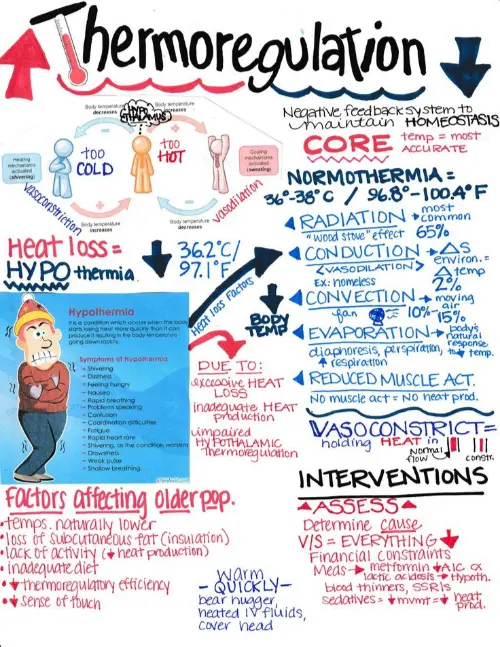 Thermoregulation
Body temperature
decreases
Body temperature
increases
HYPO
THALAMUS
Heating
mechanisms
activated
(shivering)
too
COLD
too
HOT
Cooling
mechanisms
activated
(sweating)
vasoconstriction
vasodilation
Body temperature
increases
Body temperature
decreases
Negative feedback system to
maintain HOMEOSTASIS
CORE temp = most
ACCURATE
NORMOTHERMIA =
36°-38°C / 96.8°-100.4°F
RADIATION → most
common
"wood stove" effect 65%
CONDUCTION → ΔS
environ. =
<VASODILATION> Δ temp
Ex: homeless 2%
CONVECTION → moving
air
fan 10%-15%
EVAPORATION → body's
natural
response
diaphoresis, perspiration, ↓ temp.
↑ respiration
REDUCED MUSCLE ACT.
NO muscle act = NO heat prod.
Heat loss =
HYPOthermia
↓ 36.2°C/
97.1°F
Heat loss Factors
BODY
TEMP
Hypothermia
It is a condition which occurs when the body
starts losing heat more quickly than it can
produce it resulting in the body temperature
going down rapidly.
Symptoms of Hypothermia
- Shivering
- Dizziness
- Feeling hungry
- Nausea
- Rapid breathing
- Problems speaking
- Confusion
- Coordination difficulties
- Fatigue
- Rapid heart rare
- Shivering, as the condition worsens
- Drowsiness
- Weak pulse
- Shallow breathing.
DUE TO:
excessive HEAT
LOSS
inadequate HEAT
production
impaired
HYPOTHALAMIC
Thermoregulation
VASOCONSTRICT =
holding HEAT in
Normal
flow
constr.
Factors affecting older pop.
• temps. naturally lower
• loss of subcutaneous fat (insulation)
• lack of activity (↓ heat production)
• inadequate diet
• ↓ thermoregulatory efficiency
• ↓ sense of touch
warm
- QUICKLY -
bear hugger,
heated IV fluids,
cover head
INTERVENTIONS
ASSESS
Determine cause
V/S = EVERYTHING ↓
Financial constraints
Meds → metformin ↓ A1C or
lactic acidosis → Hypoth.
blood thinners, SSRIs
sedatives = ↓ mvmt = ↓ heat
prod.